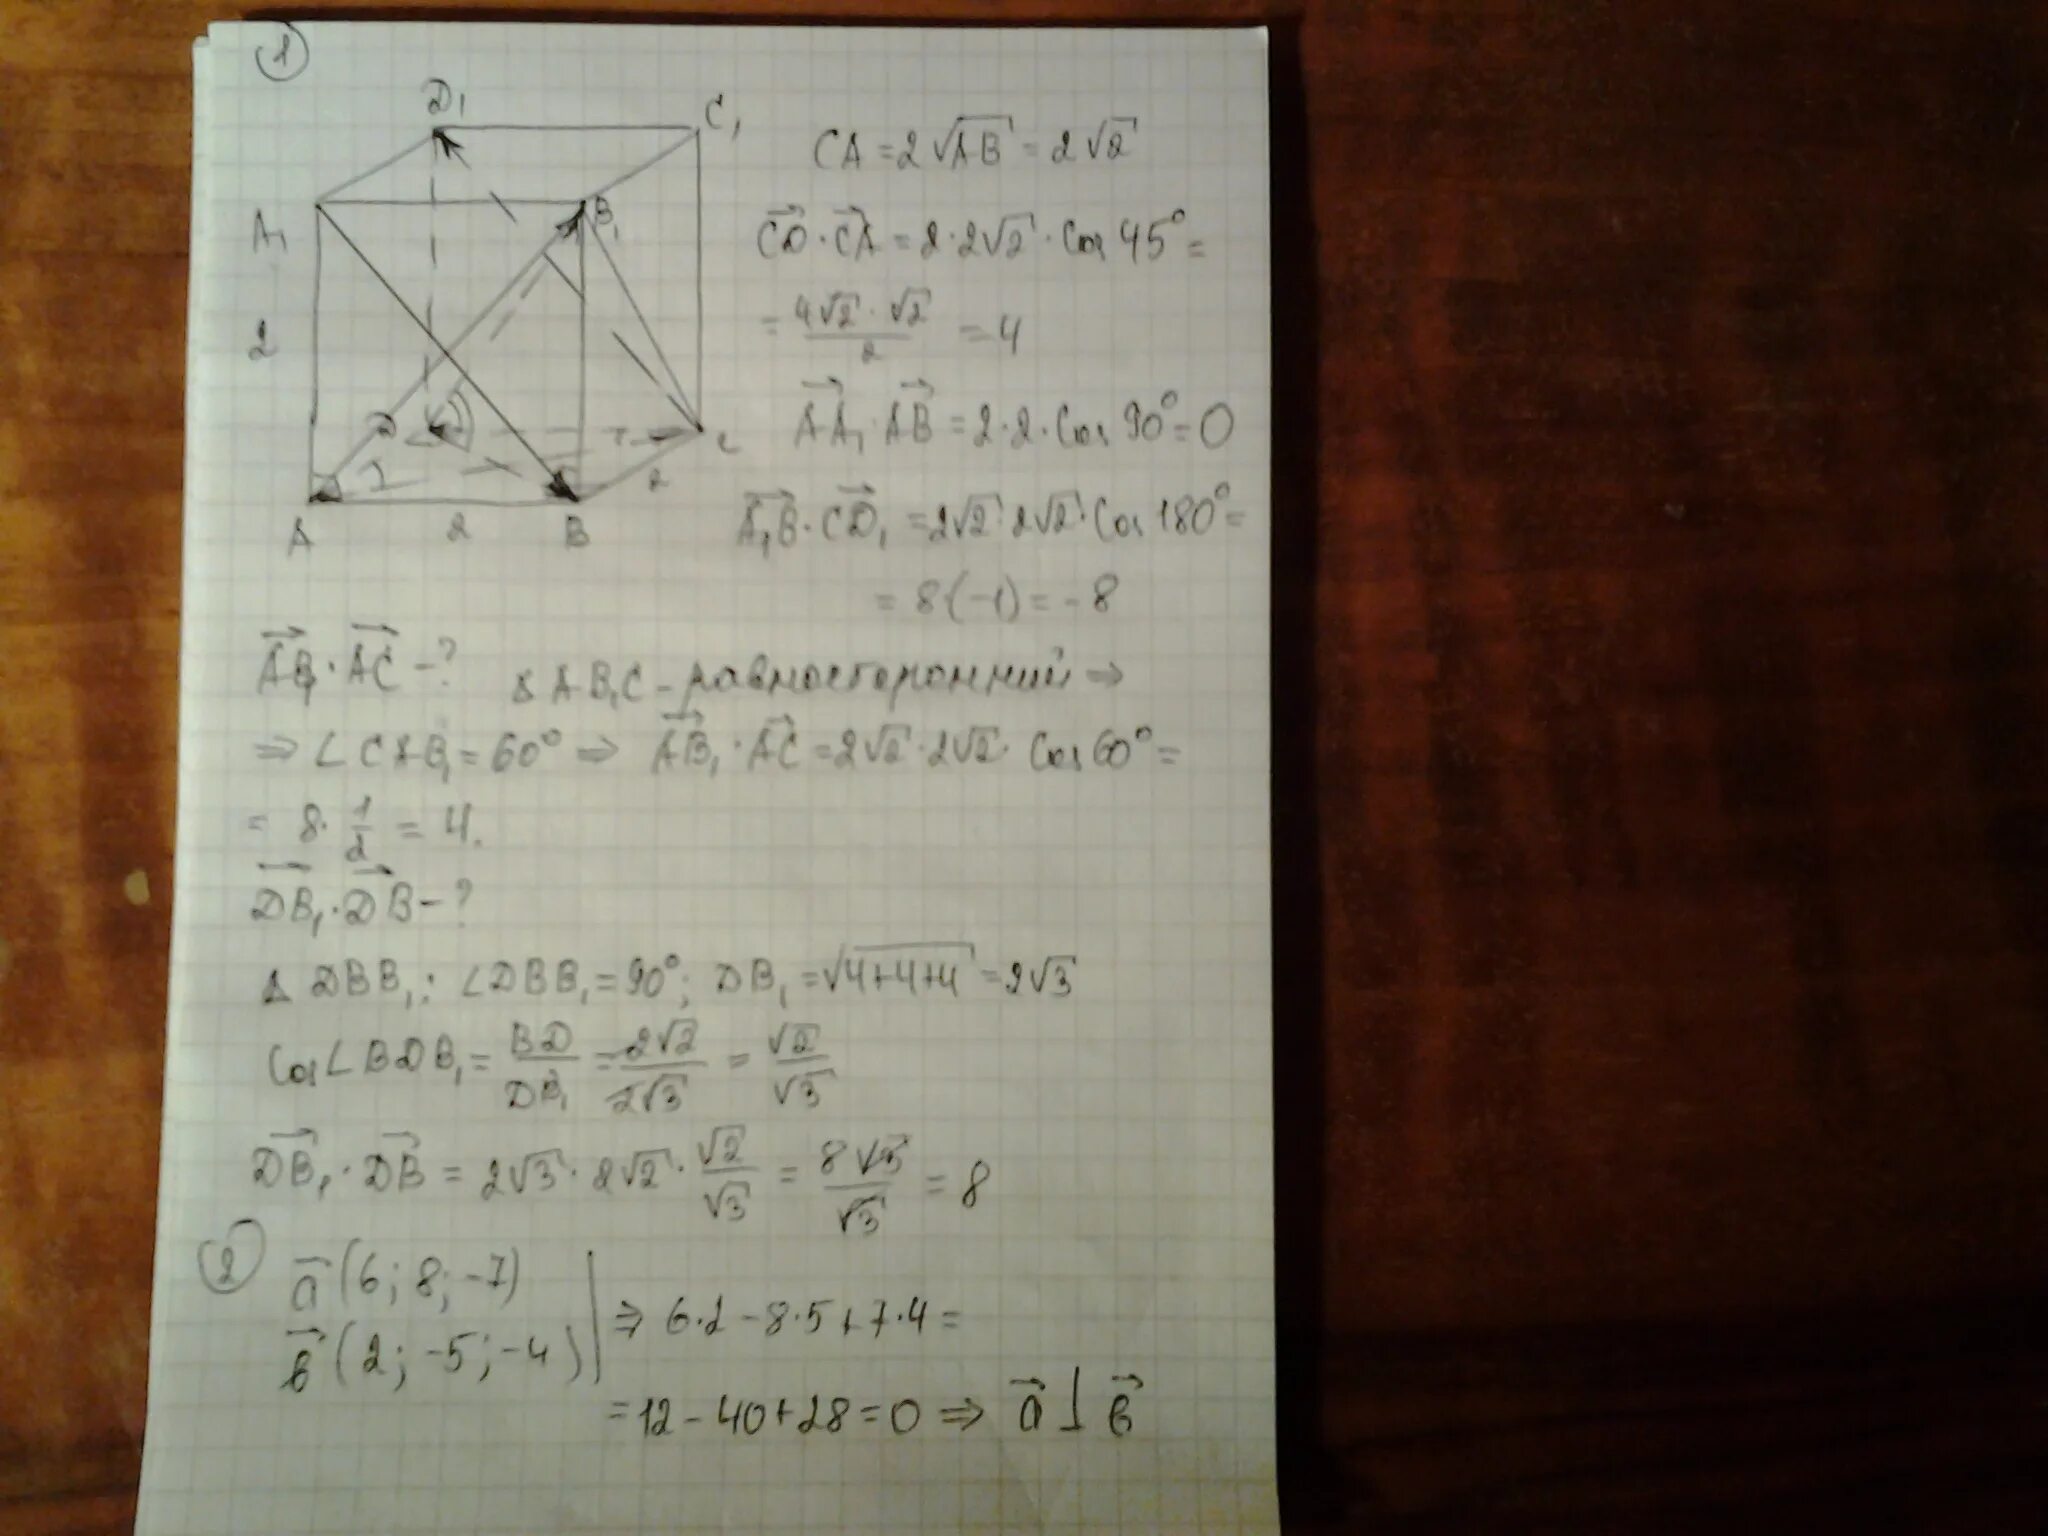 1
D₁
C₁
A₁
B₁
2
D
C
2
A
2
B
CA = 2√AB = 2√2
CD · CA = 2 · 2√2 · Cos 45° =
= 4√2 · √2 / 2 = 4
AA₁ · AB = 2 · 2 · Cos 90° = 0
A₁B · CD₁ = 2√2 · 2√2 · Cos 180° =
= 8(-1) = -8
AB₁ · AC - ? Δ AB₁C - равносторонний ⇒
⇒ ∠CAB₁ = 60° ⇒ AB₁ · AC = 2√2 · 2√2 · Cos 60° =
= 8 · 1/2 = 4.
DB₁ · DB - ?
Δ DBB₁: ∠DBB₁ = 90°; DB₁ = √4+4+4 = 2√3
Cos∠BDB₁ = BD/DB₁ = 2√2/2√3 = √2/√3
DB₁ · DB = 2√3 · 2√2 · √2/√3 = 8√3/√3 = 8
2
a (6; 8; -7)
в (2; -5; -4)
⇒ 6·2 - 8·5 + 7·4 =
= 12 - 40 + 28 = 0 ⇒ a ⊥ в